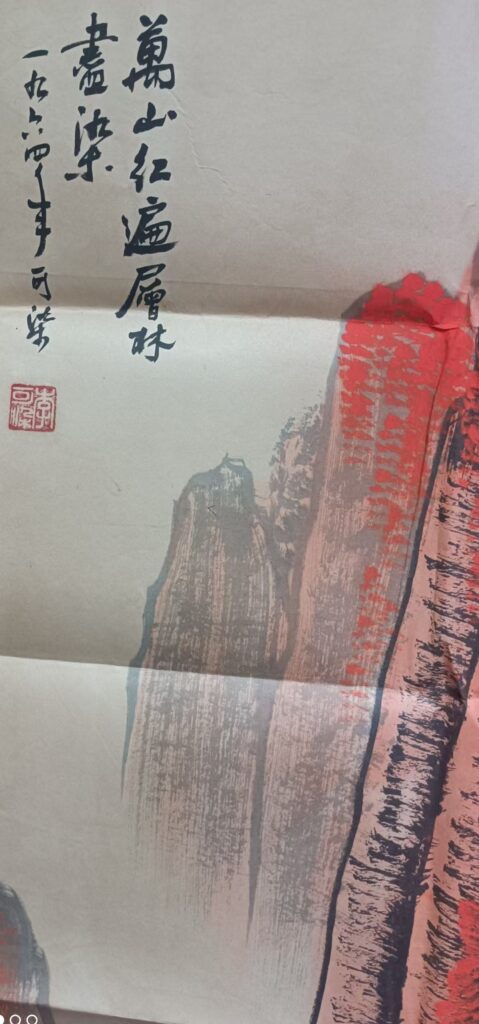 萬山紅遍層林
盡染
一九六四年可染
李可染